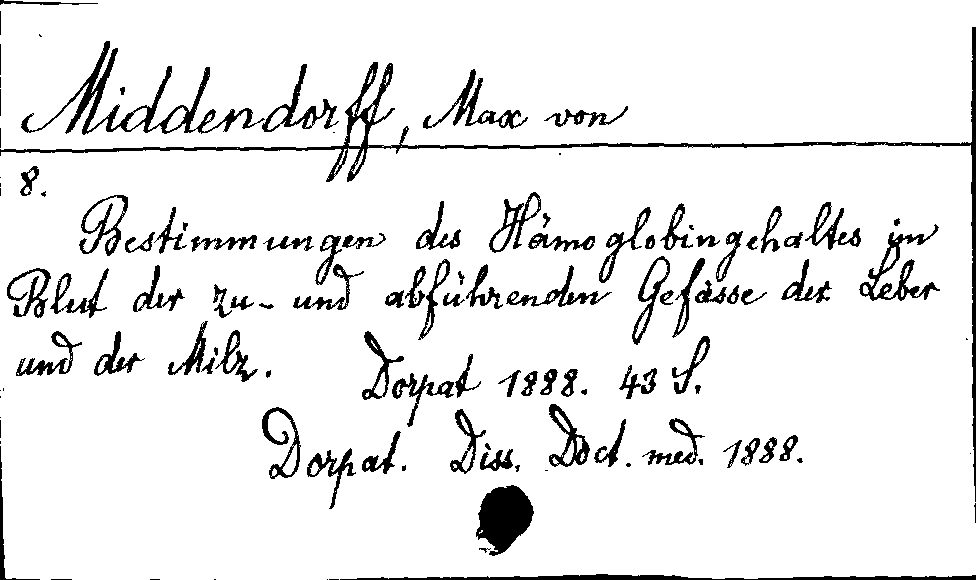 Middendorff, Max von
8.
Bestimmungen des Hämoglobingehaltes im
Blut der zu- und abführenden Gefässe der Leber
und der Milz.
Dorpat 1888. 43 S.
Dorpat. Diss. Doct. med. 1888.